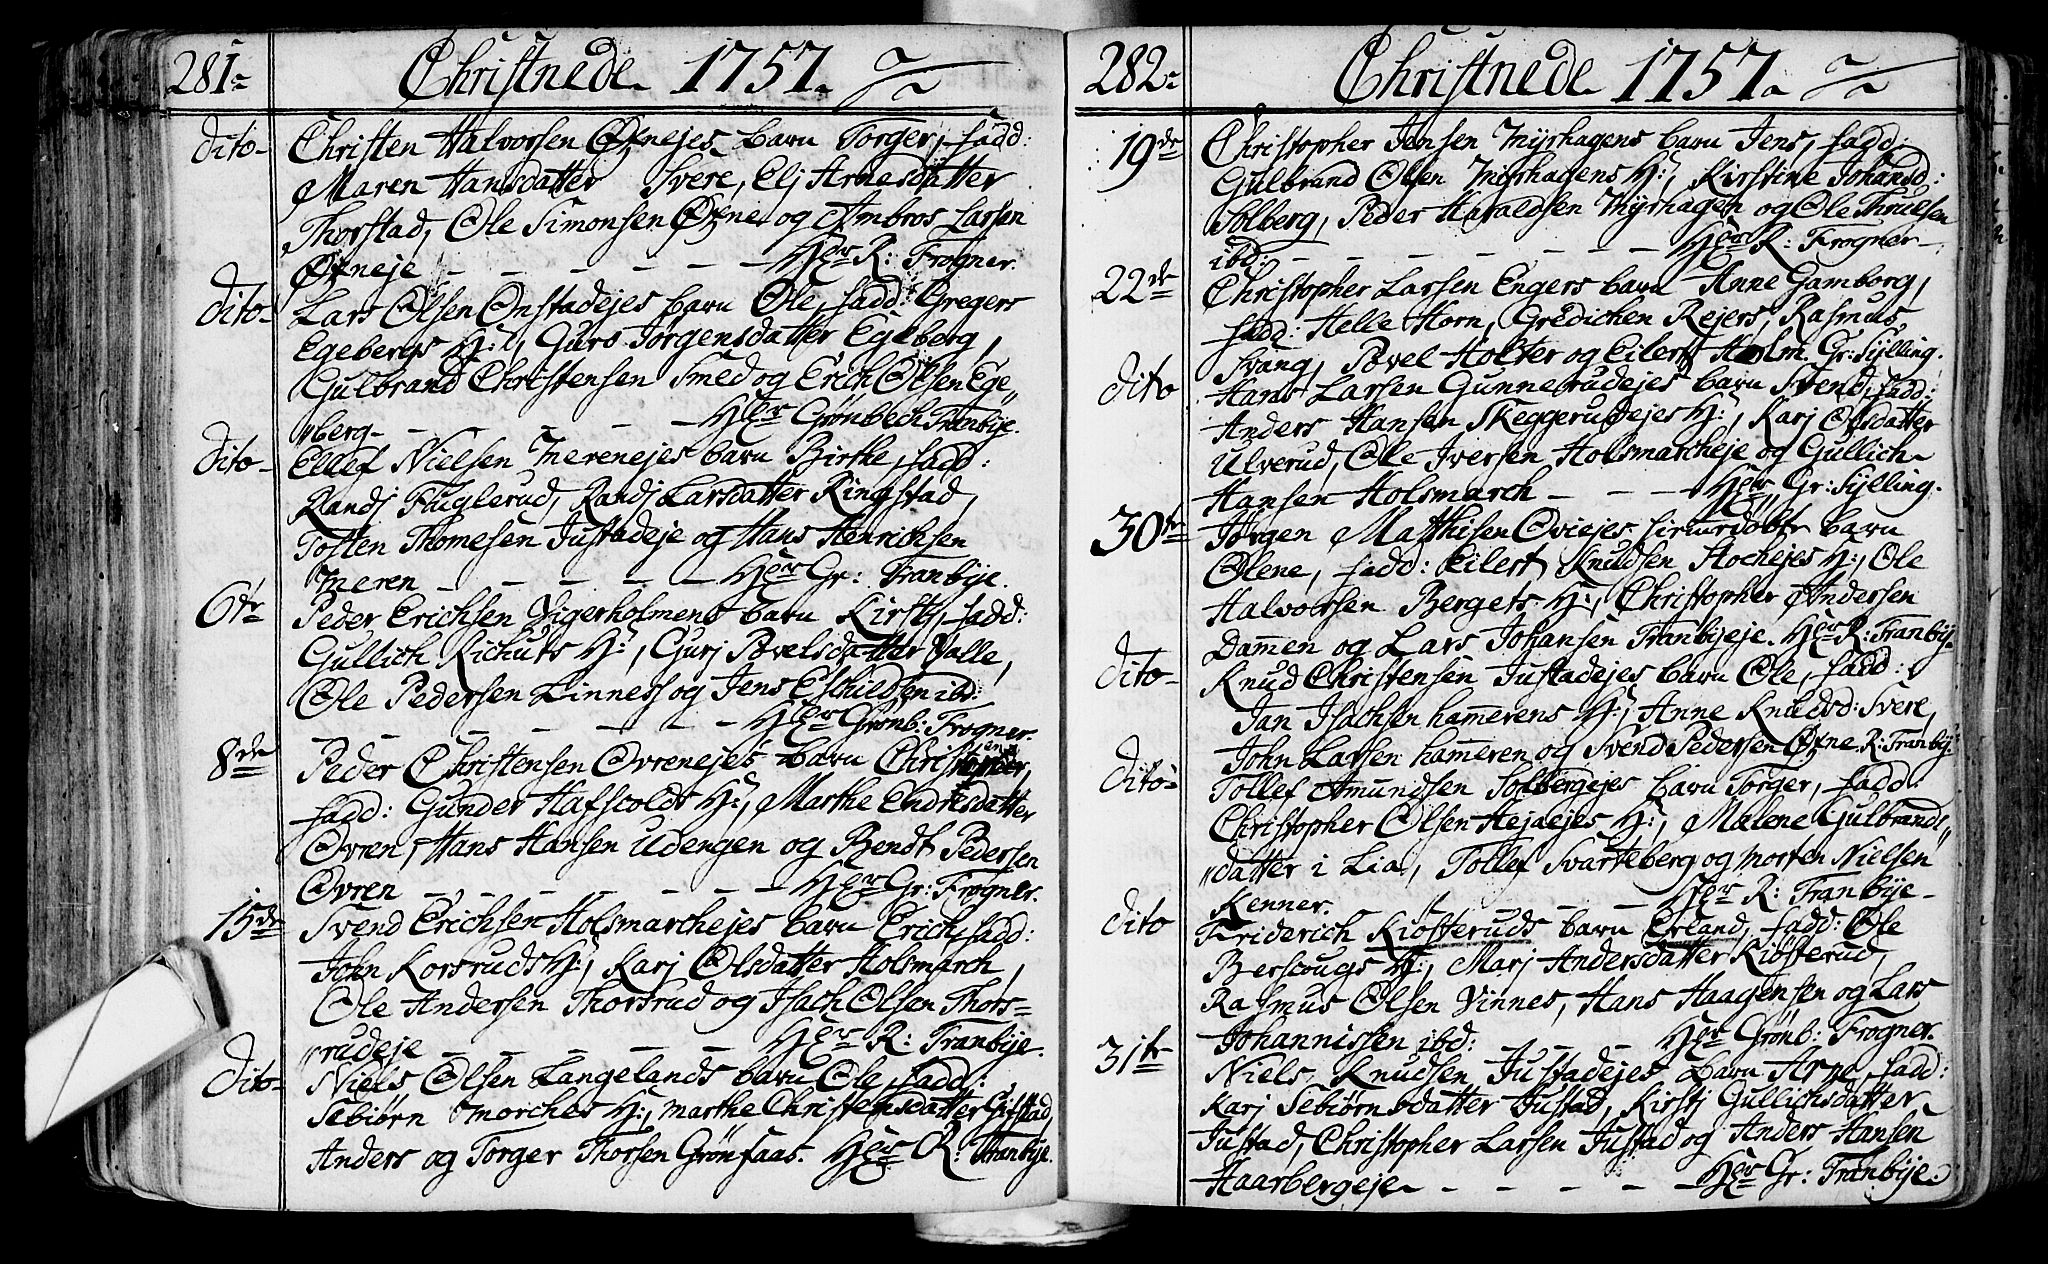 281. Christnede 1757.
dito Christen Halvorsen Øxnejes barn Torger, fadd:
Maren Hansdatter Svere, Elj Arnesdatter
Thorstad, Ole Simonsen Øxne og Ambros Larsen
Øxneje - - - - - Her R: Frogner.
dito Lars Olsen Onstadejes barn Ole, fadd: Gregers
Egebergs H:, Guro Jörgensdatter Egeberg,
Gulbrand Christensen Smed og Erich Olsen Ege„
„berg - - - - - Her Grönbech Tranbÿe.
dito Ellef Nielsen Merenejes barn Birthe, fadd:
Randj Fuglerud, Randj Larsdatter Ringstad,
Tosten Thomesen Justadeje og Hans Henrichsen
Meren - - - - - Her Gr: Tranbÿe.
6te Peder Erichsen Vigerholmens barn Kirstj, fadd:
Gullich Richuts H:, Gurj Povelsdatter Valle,
Ole Pedersen Linnes og Jens Eschildsen ibd:
- - - - - Her Grönb: Frogner.
8de Peder Christensen Ovrenejes barn Christen,
fadd: Gunder Hafscolds H:, Marthe Endresdatter
Ovren, Hans Hansen Udengen og Bendt Pedersen
Ovren - - - - - Her Gr: Frogner.
15de Svend Erichsen Holsmarchejes barn Erich, fadd:
John Korsruds H:, Karj Olsdatter Holsmarch,
Ole Andersen Thorsrud og Isach Olsen Thors=
„rudeje - - - - - Her R: Tranbÿe.
dito Niels Olsen Langelands barn Ole, fadd:
Sebiörn Morches H:, Marthe Christensdatter Gifstad,
Anders og Torger Thorsen Grönsaas. Her R: Tranbÿe.
282. Christnede 1757.
19de Christopher Jensen Myrhagens barn Jens, fadd:
Gulbrand Olsen Myrhagens H:, Kirstine Johansd:
Solberg, Peder Haraldsen Myrhagen og Ole Thruelsen
ibd: - - - - - Her R: Frogner
22de Christopher Larsen Engers barn Anne Gamborg,
fadd: Helle Horn, Gredichen Rejers, Rasmus
Svang, Povel Holter og Eilert Holm. Gr: Sylling.
dito Hans Larsen Gunnerudejes barn Svend, fadd:
Anders Hansen Skeggerudejes H:, Karj Olsdatter
Ulverud, Ole Iversen Holsmarcheje og Gullich
Hansen Holsmarch - - - Her Gr: Sylling.
30te Jörgen Matthisen Oviejes hiemedöbt barn
Olene, fadd: Eilert Knudsen Hochejes H:, Ole
Halvorsen Bergets H:, Christopher Andersen
Dam̄en og Lars Johansen Tranbÿeje. Her R: Tranbÿ-
dito Knud Christensen Justadejes barn Ole, fadd:
Jan Isachsen ham̄erens H:, Anne Knudsd: Svere,
John Larsen ham̄eren og Svend Pedersen Øxne. R: Tranbÿ
dito Tollef Amundsen Solbergejes barn Torger, fadd:
Christopher Olsen Hejaejes H:, Malene Gulbrands„
„datter i Lia, Tollef Svarteberg og Morten Nielsen
Kenner. - - - Her R: Tranbÿe
dito Friderich Kiösteruds barn Erland, fadd: Ole
Berscougs H:, Marj Andersdatter Kiösterud,
Rasmus Olsen Vinnes, Hans Haagensen og Lars
Johannissen ibd: - - - Her Grönb: Frogner.
31te Niels Knudsen Justadejes barn Arne, fadd:
Karj Sebiörnsdatter Justad, Kirstj Gullichsdatter
Justad, Christopher Larsen Justad og Anders Hansen
Haarbergeje - - - - - Her Gr: Tranbÿe.